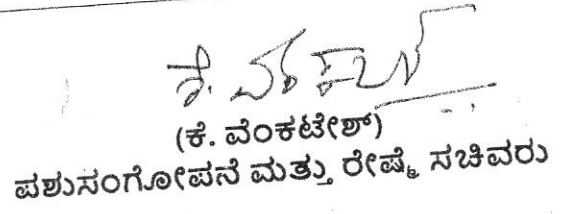 (ಕೆ. ವೆಂಕಟೇಶ್)
ಪಶುಸಂಗೋಪನೆ ಮತ್ತು ರೇಷ್ಮೆ ಸಚಿವರು